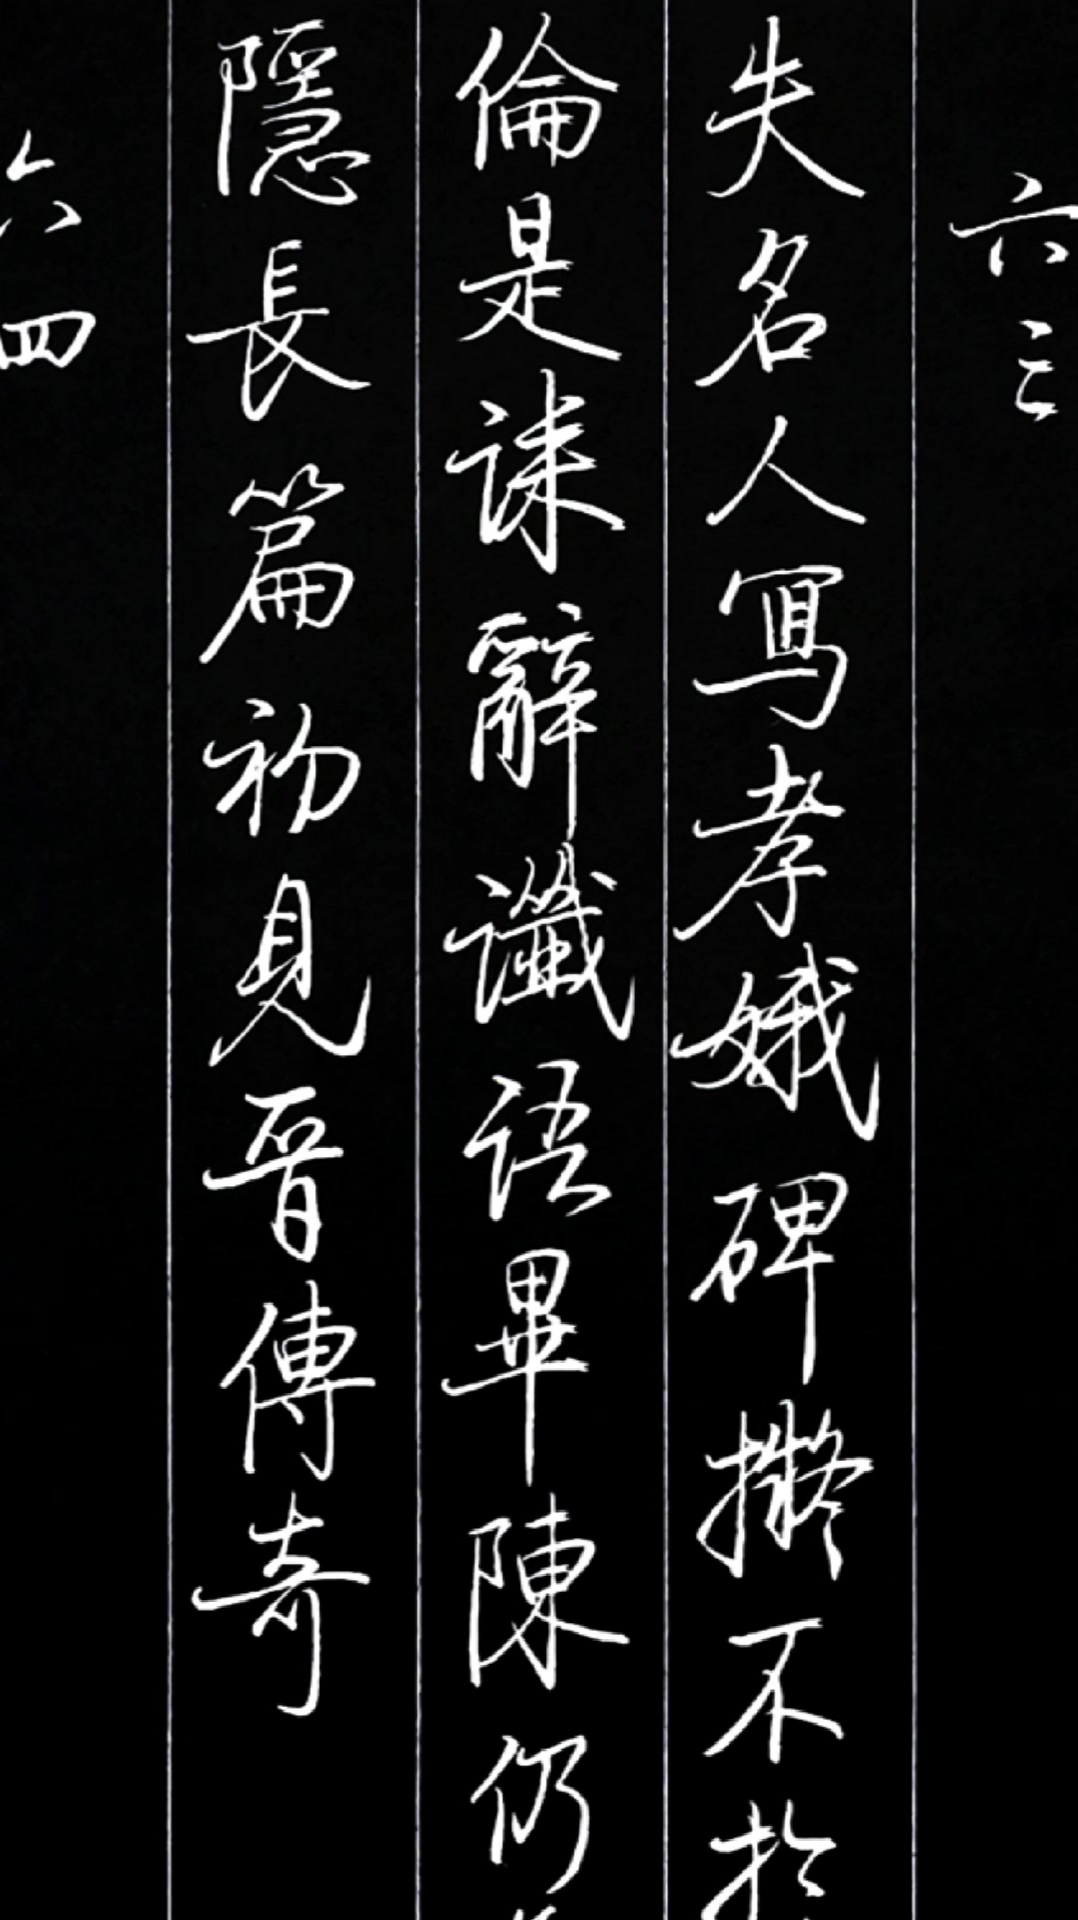 六三
失名人寫孝娥碑擬不於
倫是誄辭讖語畢陳仍
隱長篇初見晉傳奇
六四